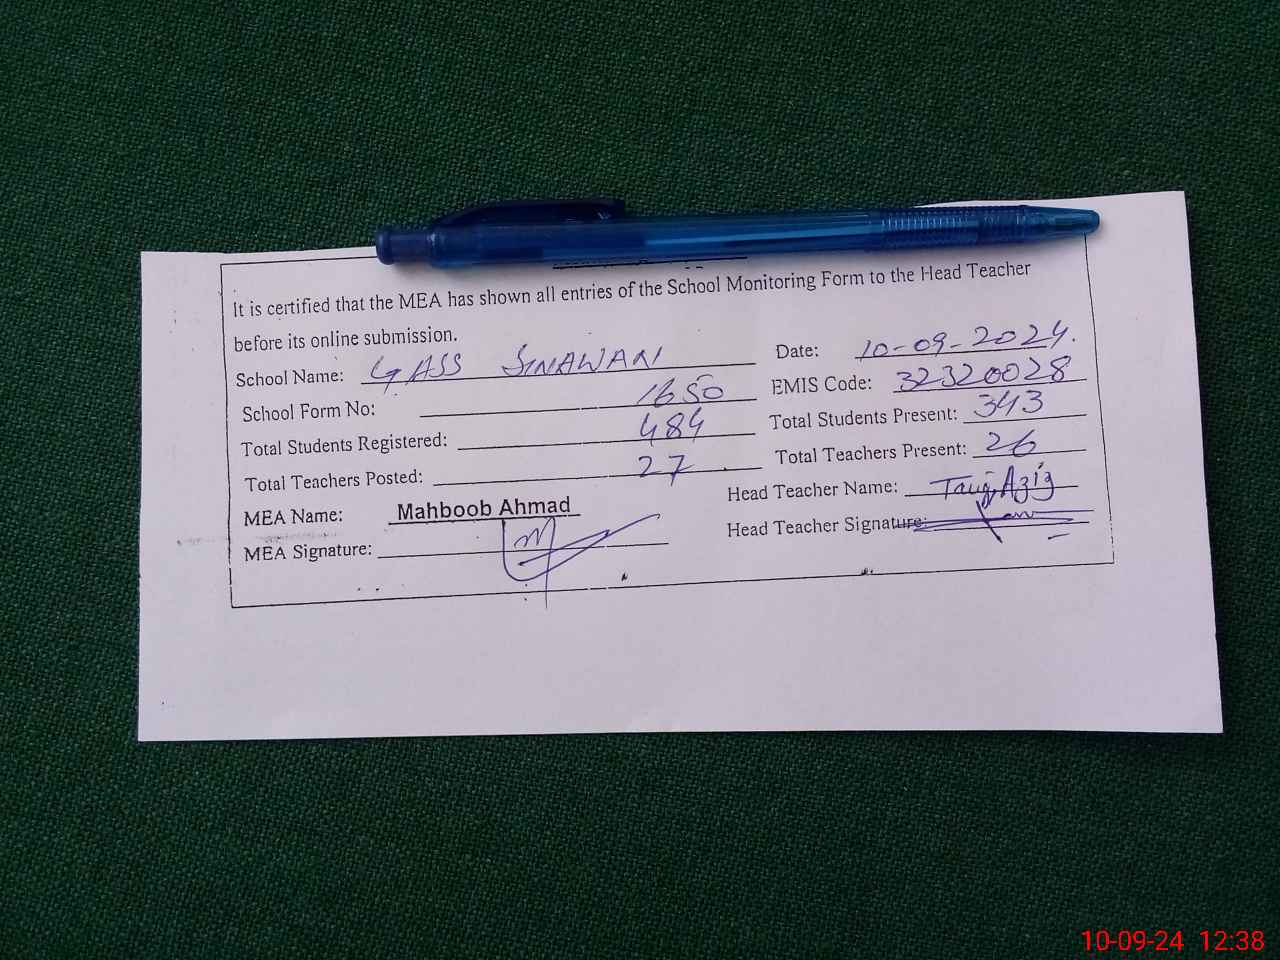 It is certified that the MEA has shown all entries of the School Monitoring Form to the Head Teacher
before its online submission.
School Name: GASS SINAWAN Date: 10-09-2024.
School Form No: 1650 EMIS Code: 32320028
Total Students Registered: 484 Total Students Present: 343
Total Teachers Posted: 27 Total Teachers Present: 26
MEA Name: Mahboob Ahmad Head Teacher Name: Tariq Aziz
MEA Signature: Head Teacher Signature:
10-09-24 12:38